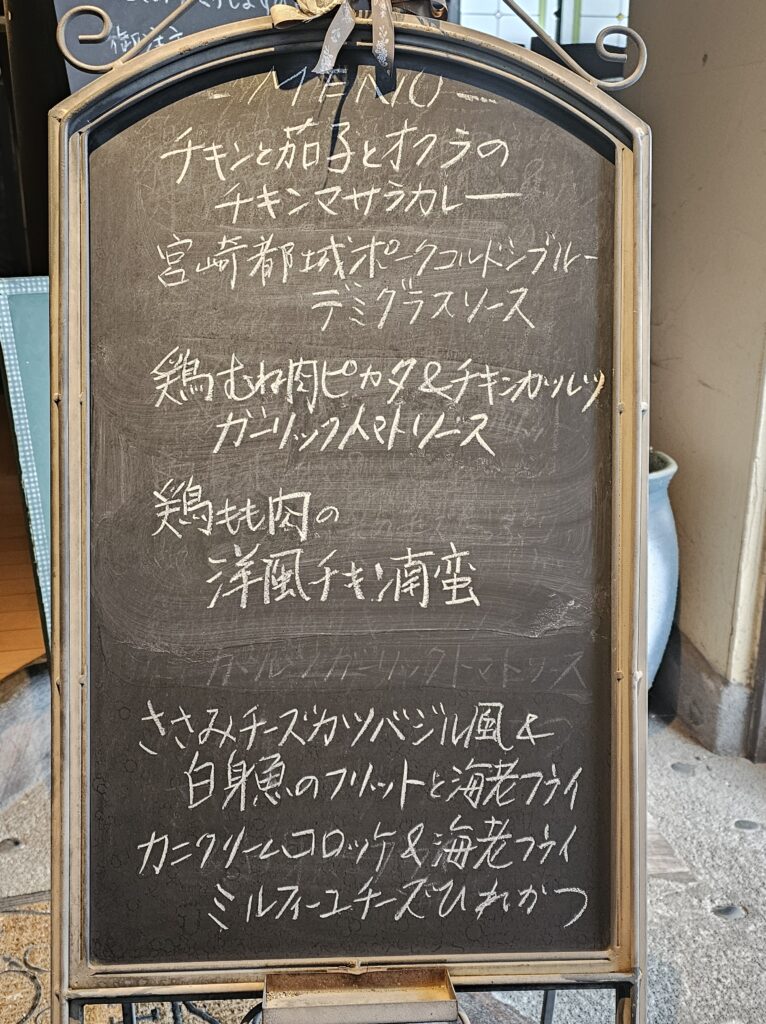 - MENU -
チキンと茄子とオクラの
チキンマサラカレー
宮崎都城ポークコルドンブルー
デミグラスソース
鶏むね肉ピカタ&チキンカツレツ
ガーリックトマトソース
鶏もも肉の
洋風チキン南蛮
ガーリックトマトソース
ささみチーズカツバジル風&
白身魚のフリットと海老フライ
カニクリームコロッケ&海老フライ
ミルフィーユチーズひれかつ